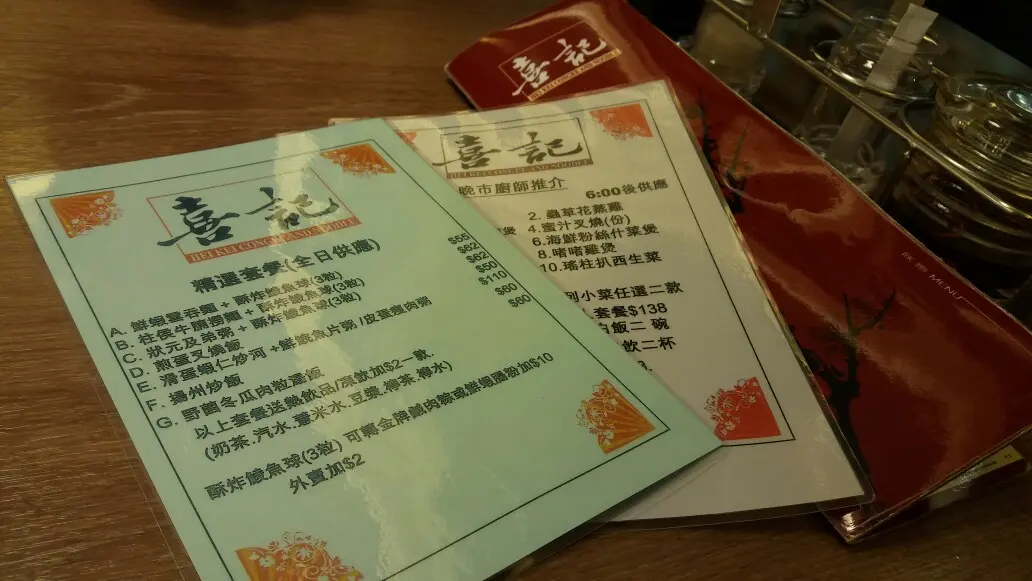 喜記
HEI KEI CONGEE AND NOODLE
精選套餐(全日供應)
A. 鮮蝦雲吞麵 + 酥炸鯪魚球(3粒) $56
B. 柱侯牛腩撈麵 + 酥炸鯪魚球(3粒) $62
C. 狀元及弟粥 + 酥炸鯪魚球(3粒) $62
D. 煎蛋叉燒飯 $60
E. 滑蛋蝦仁炒河 +鮮鯪魚片粥 /皮蛋瘦肉粥 $110
F. 揚州炒飯 $60
G. 野菌冬瓜肉粒湯飯 $60
以上套餐送熱飲品/凍飲加$2一款.
(奶茶.汽水.薏米水.豆漿.檸茶.檸水)
酥炸鯪魚球(3粒) 可轉金牌鹹肉粽或鮮蝦腸粉加$10
外賣加$2
喜記
HEI KEI CONGEE AND NOODLE
晚市廚師推介
6:00後供應
2. 蟲草花蒸雞
煲 4. 蜜汁叉燒(份)
6. 海鮮粉絲什菜煲
8. 啫啫雞煲
10. 瑤柱扒西生菜
列小菜任選二款
套餐$138
白飯二 碗
飲二杯
喜記
HEI KEI CONGEE AND NOODLE
MENU